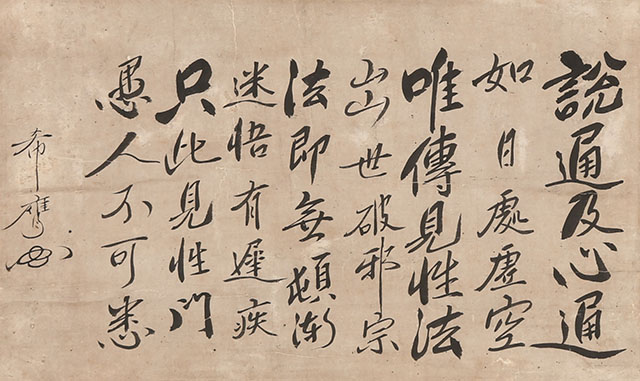 說通及心通
如日處虛空
唯傳見性法
出世破邪宗
法即無頓漸
迷悟有遲疾
只此見性門
愚人不可悉
希